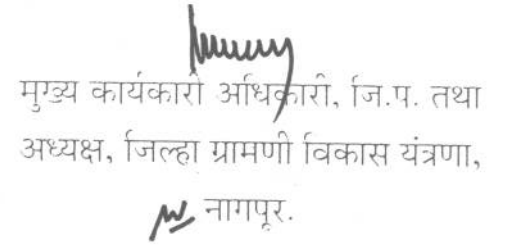 मुख्य कार्यकारी अधिकारी, जि.प. तथा
अध्यक्ष, जिल्हा ग्रामणी विकास यंत्रणा,
नागपूर.